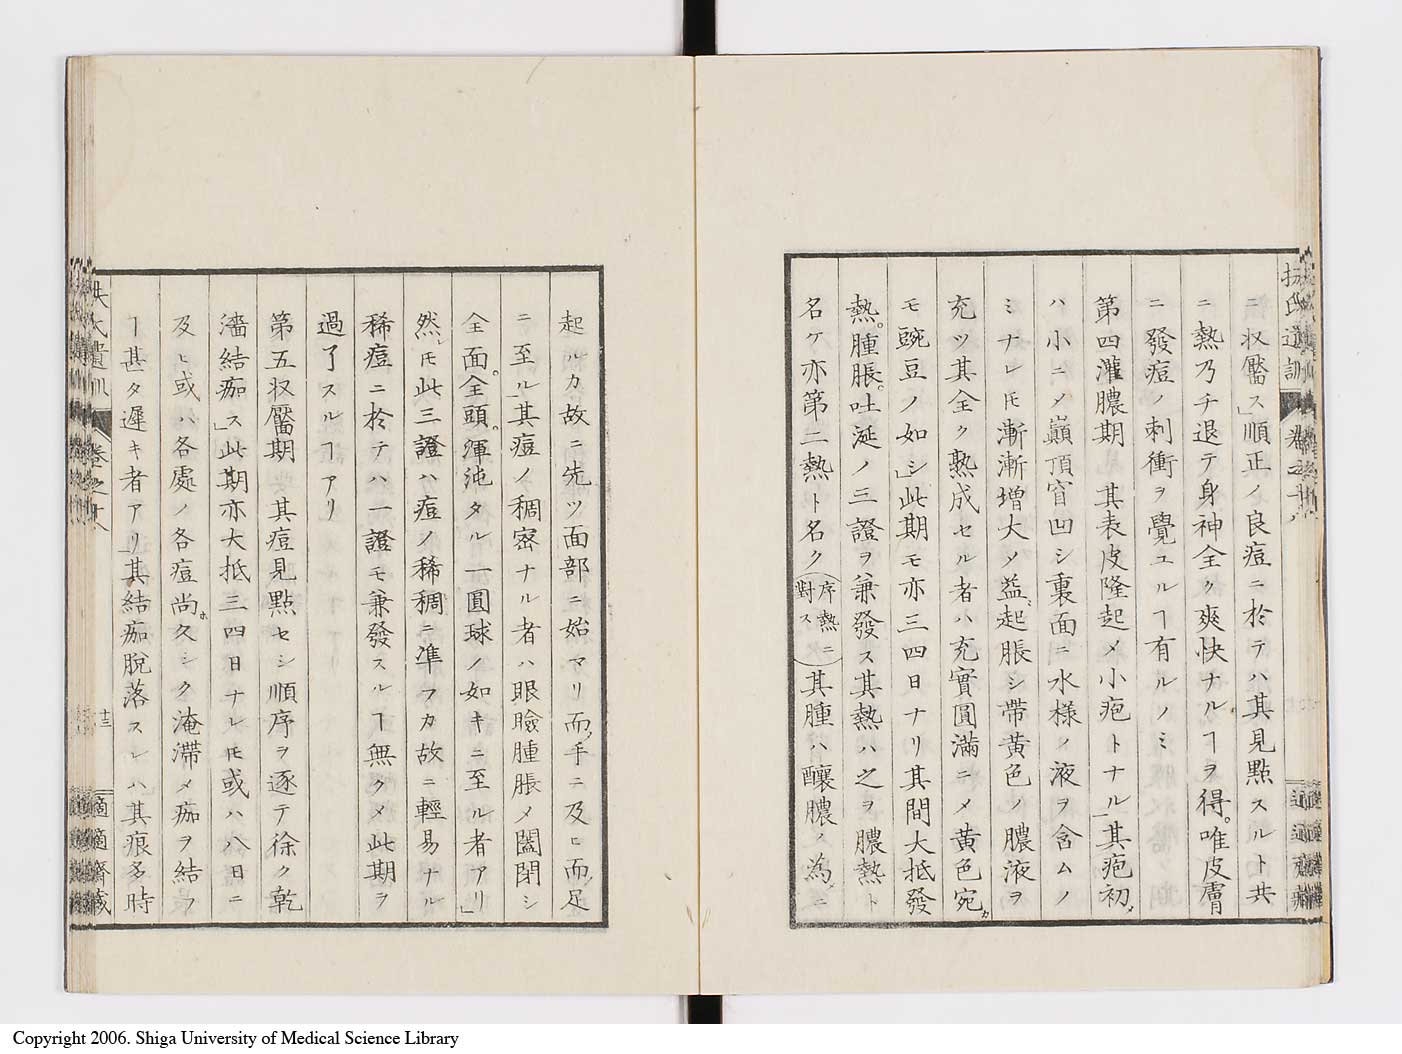 扶氏遺訓
ニ収靨ス」順正ノ良痘ニ於テハ其見點スルト共
ニ熱乃チ退テ身神全ク爽快ナルヿヲ得。唯皮膚
ニ發痘ノ刺衝ヲ覺ユルヿ有ルノミ
第四灌膿期　其表皮隆起〆小疱トナル」其疱初
ハ小ニ〆巓頂窅凹シ裏面ニ水様ノ液ヲ含ムノ
ミナレ𪜈漸漸增大〆益起脹シ帶黄色ノ膿液ヲ
充ツ其全ク熟成セル者ハ充實圓滿ニ〆黄色宛
モ豌豆ノ如シ」此期モ亦三四日ナリ其間大抵發
熱。腫脹。吐涎ノ三證ヲ兼發ス其熱ハ之ヲ膿熱ト
名ケ亦第二熱ト名ク(序熱ニ對ス)其腫ハ釀膿ノ為ニ
起ルカ故ニ先ツ面部ニ始マリ而手ニ及ヒ而足
ニ至ル」其痘ノ稠密ナル者ハ眼瞼腫脹〆闔閉シ
全面。全頭。渾沌タル一圓球ノ如キニ至ル者アリ」
然𪜈此三證ハ痘ノ稀稠ニ準フカ故ニ輕易ナル
稀痘ニ於テハ一證モ兼發スルヿ無ク〆此期ヲ
過了スルヿアリ
第五収靨期　其痘見點セシ順序ヲ逐テ徐ク乾
濇結痂ス」此期亦大抵三四日ナレ𪜈或ハ八日ニ
及ヒ或ハ各處ノ各痘尚久シク淹滯〆痂ヲ結フ
ヿ甚タ遲キ者アリ」其結痂脫落スレハ其痕多時
扶氏遺訓　卷之十八　十三　適適齋藏
Copyright 2006. Shiga University of Medical Science Library